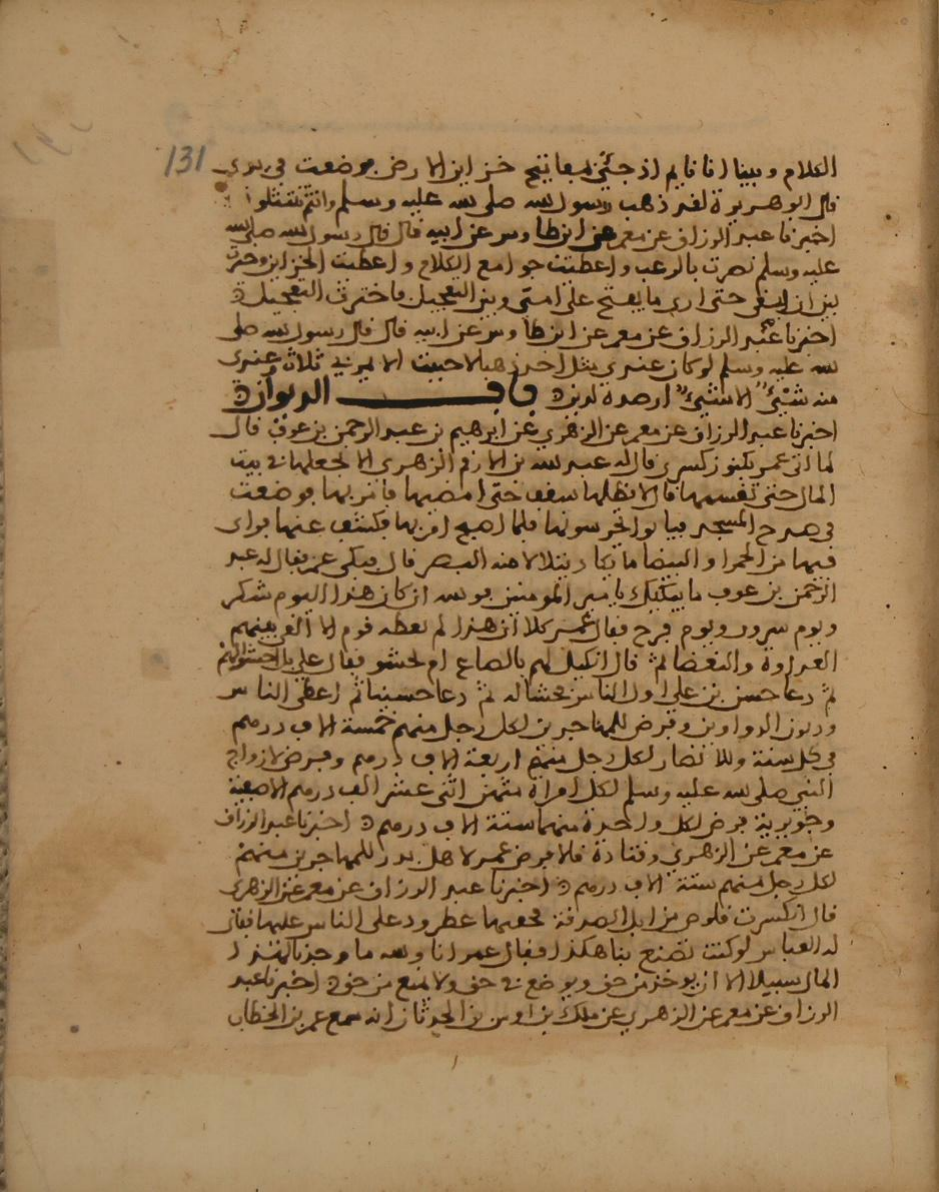 131
الكلام وبينا انا نايم اذ جئ بمفاتيح خزاين الارض فوضعت في يدي
قال ابو هريرة لقد ذهب رسول الله صلى الله عليه وسلم وانتم تنتثلونها
اخبرنا عبد الرزاق عن معمر عن ابن طاوس عن ابيه قال قال رسول الله صلى الله
عليه وسلم نصرت بالرعب واعطيت جوامع الكلام واعطيت الخزاين وخيرت
بين ان ابقى حتى ارى ما يفتح على امتي وبين التعجيل فاخترت التعجيل
اخبرنا عبد الرزاق عن معمر عن ابن طاوس عن ابيه قال قال رسول الله صلى
الله عليه وسلم لو كان عندي مثل احد ذهبا لاحببت الا يمر بي ثلاثة وعندي
منه شيئ الا شيئ ارصده لدين باب الديوان
اخبرنا عبد الرزاق عن معمر عن الزهري عن ابرهيم بن عبد الرحمن بن عوف قال
لما اتي عمر بكنوز كسرى قال له عبد الله بن الارقم الزهري الا تجعلها في بيت
المال حتى تقسمها قال لا يظلها سقف حتى امضيها فامر بها فوضعت
في صرح المسجد فباتوا يحرسونها فلما اصبح امر بها فكشف عنها فراى
فيها من الحمرا والبيضا ما يكاد يتلالا منه البصر قال فبكى عمر فقال له عبد
الرحمن بن عوف ما يبكيك يا امير المومنين فو الله ان كان هذا اليوم شكر
ويوم سرور ويوم فرح فقال عمر كلا ان هذا لم يعطه قوم الا القي بينهم
العداوة والبغضا ثم قال انكيل لهم بالصاع ام نحثو فقال علي بل احثوا لهم
ثم دعا حسن بن علي اول الناس فحثا له ثم دعا حسينا ثم اعطى الناس
ودون الدواوين وفرض للمهاجرين لكل رجل منهم خمسة الاف درهم
في كل سنة وللانصار لكل رجل منهم اربعة الاف درهم وفرض لازواج
النبي صلى الله عليه وسلم لكل امراة منهن اثني عشر الف درهم الا صفية
وجويرية فرض لكل واحدة منهما ستة الاف درهم اخبرنا عبد الرزاق
عن معمر عن الزهري وقتادة قالا فرض عمر لاهل بدر للمهاجرين منهم
لكل رجل منهم ستة الاف درهم اخبرنا عبد الرزاق عن معمر عن الزهري
قال انكسرت قلوص من ابل الصدقة فجفنها عمر ودعى الناس عليها فقال
له العباس لو كنت تصنع بنا هكذا فقال عمر انا والله ما وجدنا لهذا
المال سبيلا الا ان يوخذ من حق ويوضع في حق ولا يمنع من حق اخبرنا عبد
الرزاق عن معمر عن الزهري عن ملك بن اوس بن الحدثان انه سمع عمر بن الخطاب